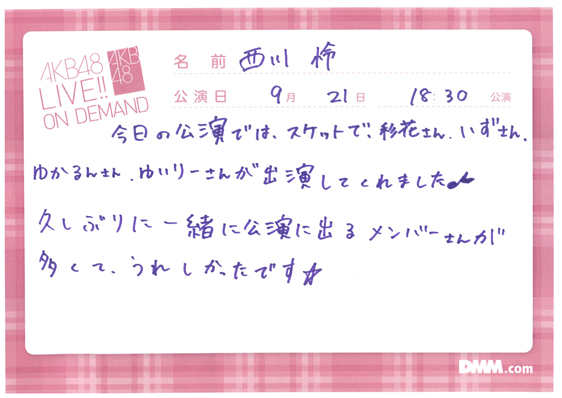 AKB48
LIVE!!
ON DEMAND
AKB
48
名前 西川 怜
公演日 9月 21日 18:30 公演
今日の公演では、スケットで、彩花さん、いずさん、
ゆかるんさん、ゆいりーさんが出演してくれました♪
久しぶりに一緒に公演に出るメンバーさんが
多くて、うれしかったです☆
DMM.com